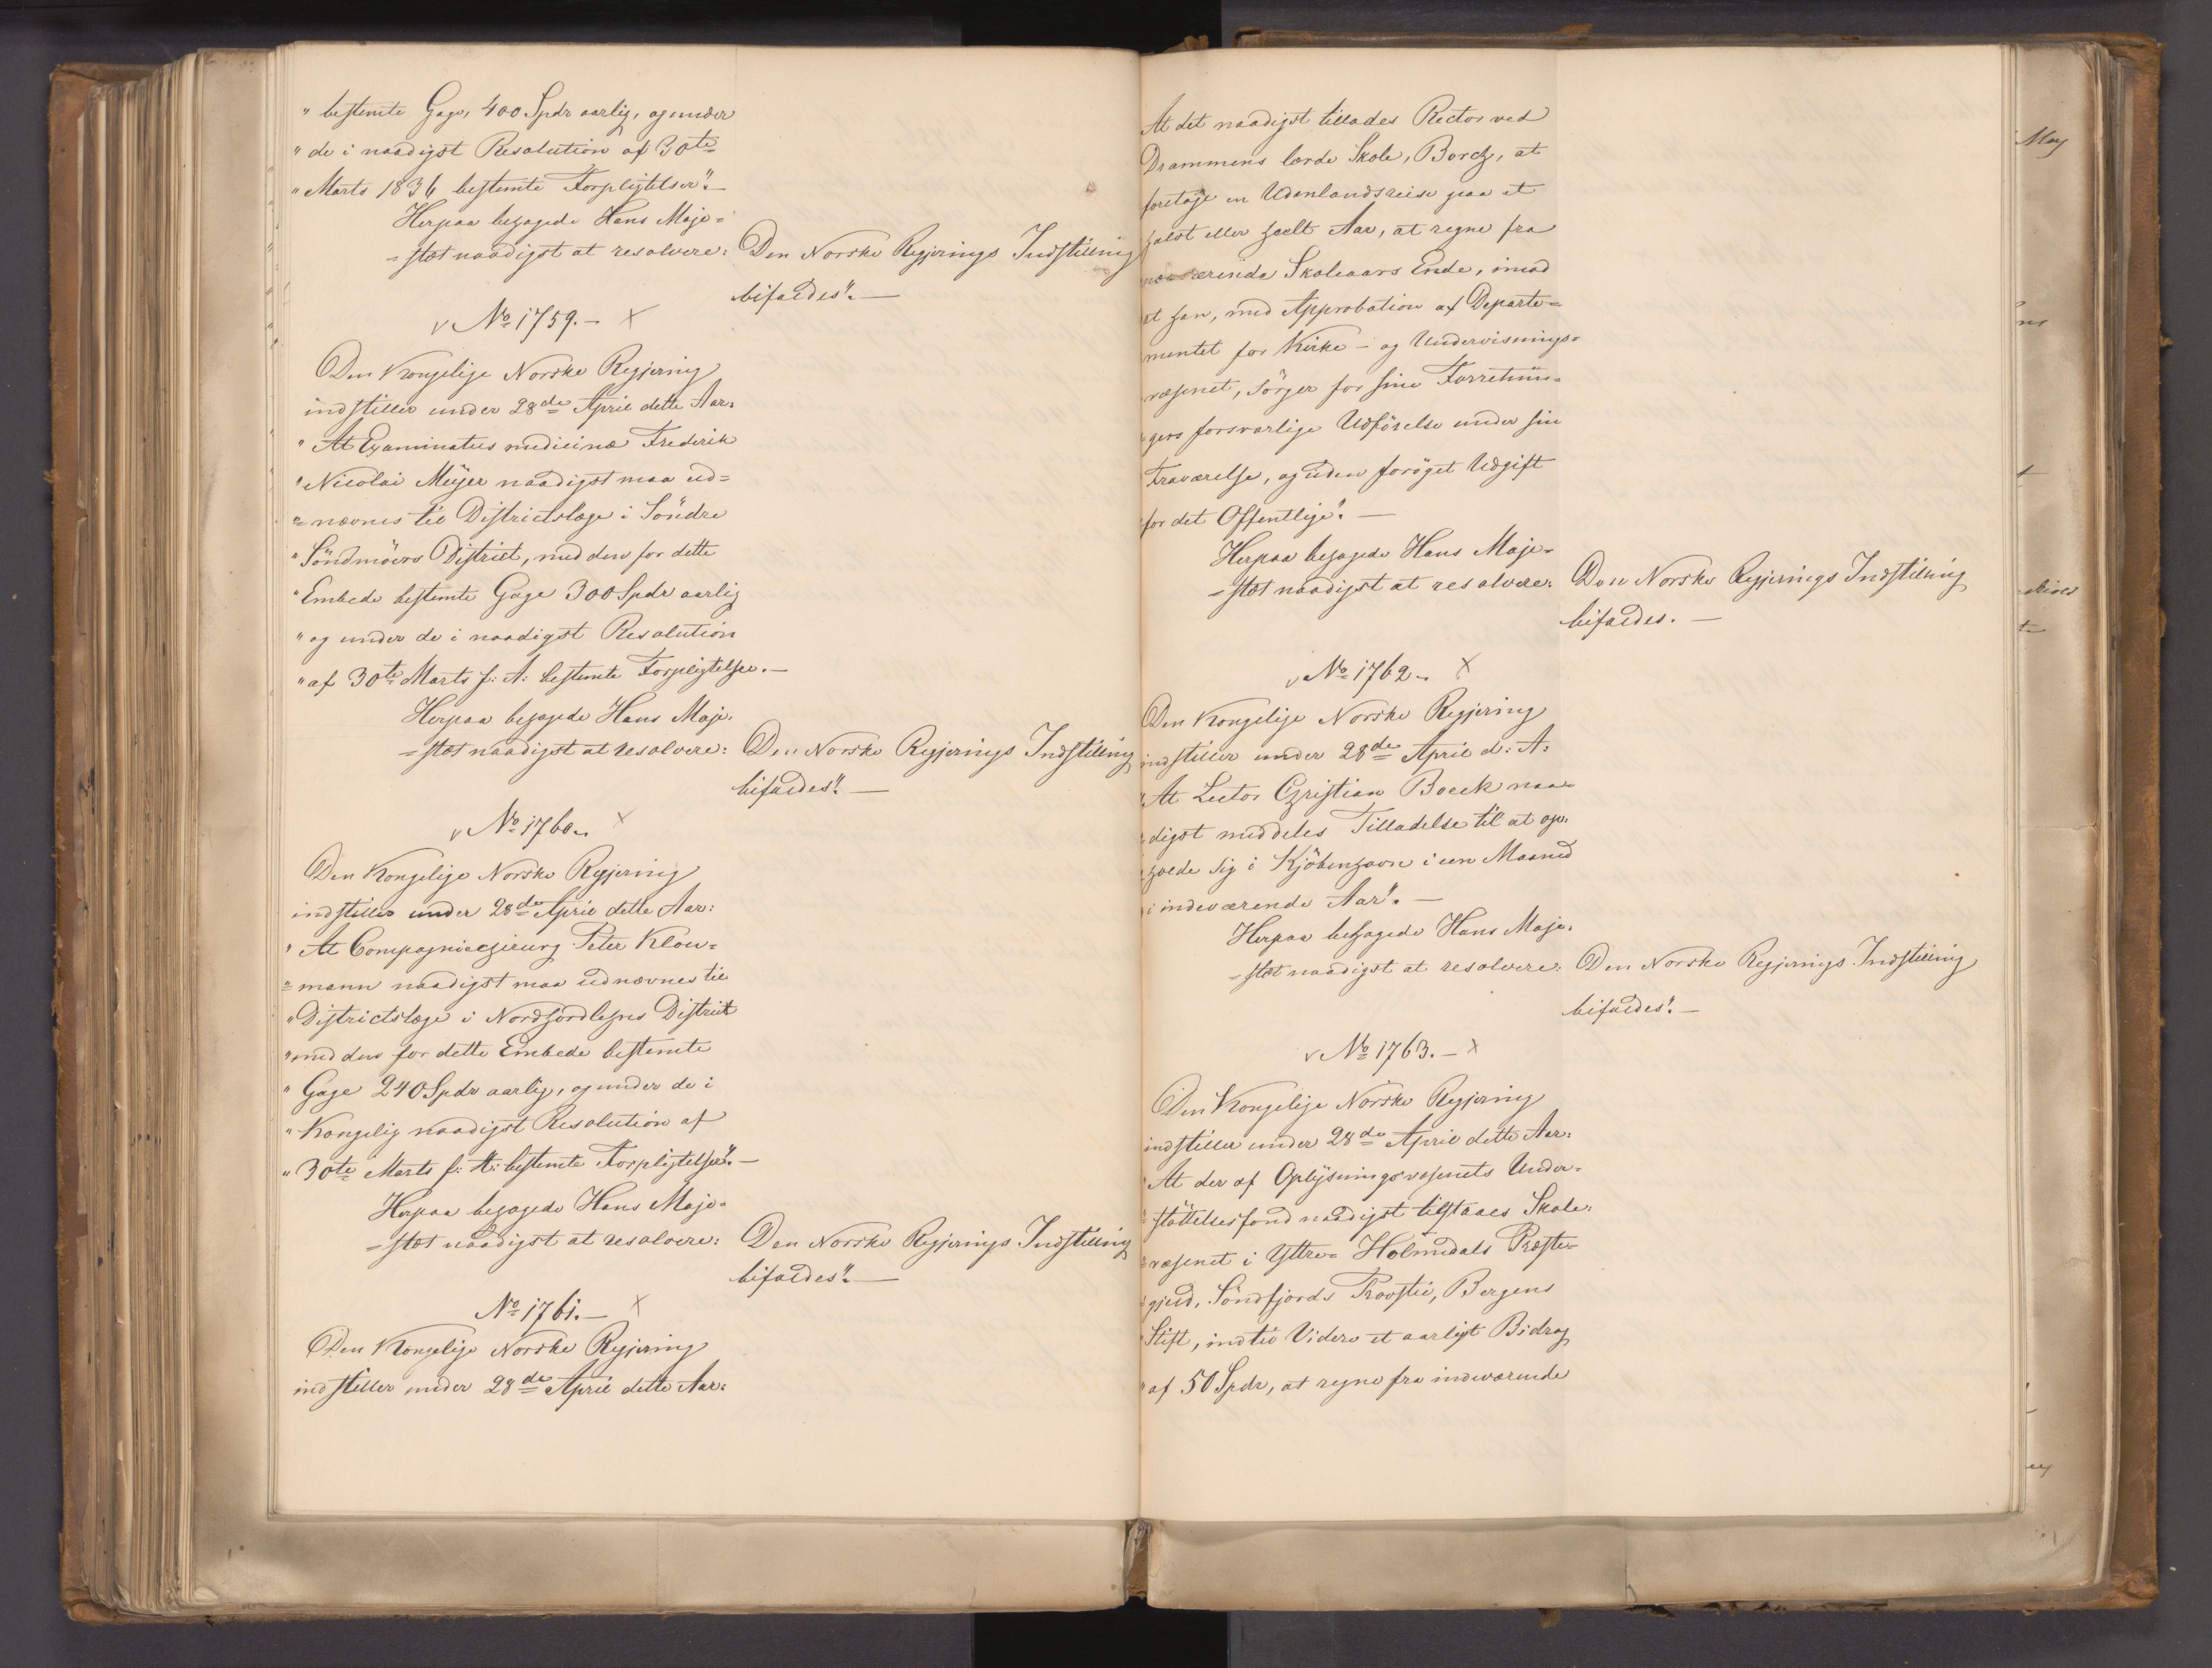 " bestemte Gage, 400 Spdr aarlig, og under
" de i naadigst Resolution af 30te
" Marts 1836 bestemte Forpligtelser". —
Herpaa behagede Hans Maje-
-stæt naadigst at resolvere: Den Norske Regjerings Indstilling
bifaldes". —
No 1759. —
Den Kongelige Norske Regjering
indstiller under 28de April dette Aar:
" At Examinatus medicinæ Frederik
" Nicolai Meÿer naadigst maa ud=
= nævnes til Districtslæge i Söndre
" Söndmöers District, med den for dette
" Embede bestemte Gage 300 Spdr aarlig
" og under de i naadigst Resolution
" af 30te Marts f: A: bestemte Forpligtelser. —
Herpaa behagede Hans Maje-
-stæt naadigst at resolvere: Den Norske Regjerings Indstilling
bifaldes". —
No 1760.
Den Kongelige Norske Regjering
indstiller under 28de April dette Aar:
" At Compagniechirurg Peter Klow=
= mann naadigst maa udnævnes til
" Districtslæge i Nordhordlehns District
" med den for dette Embede bestemte
" Gage 240 Spdr aarlig, og under de i
" Kongelig naadigst Resolution af
" 30te Marts f: A: bestemte Forpligtelser". —
Herpaa behagede Hans Maje-
-stæt naadigst at resolvere: Den Norske Regjerings Indstilling
bifaldes". —
No 1761. —
Den Kongelige Norske Regjering
indstiller under 28de April dette Aar:
At det naadigst tillades Rector ved
Drammens lærde Skole, Borch, at
foretage en Udenlandsreise paa et
halvt eller heelt Aar, at regne fra
nærværende Skoleaars Ende, imod
at han, med Approbation af Departe=
mentet for Kirke- og Undervisnings=
væsenet, sörger for sine Forretnin=
gers forsvarlige Udförelse under sin
Fraværelse, og uden foröget Udgift
for det Offentlige". —
Herpaa behagede Hans Maje-
-stæt naadigst at resolvere: Den Norske Regjerings Indstilling
bifaldes. —
No 1762.
Den Kongelige Norske Regjering
indstiller under 28de April d: A:
" At Lector Christian Boeck naa=
digst meddeles Tilladelse til at op=
holde sig i Kjöbenhavn i een Maaned
i indeværende Aar". —
Herpaa behagede Hans Maje-
-stæt naadigst at resolvere: Den Norske Regjerings Indstilling
bifaldes". —
No 1763. —
Den Kongelige Norske Regjering
indstiller under 28de April dette Aar:
" At der af Oplysningsvæsenets Under=
= stöttelsesfond naadigst tilstaaes Skole=
væsenet i Yttre= Holmedals Præste=
gjeld, Söndfjords Provstie, Bergens
Stift, indtil Videre et aarligt Bidrag
" af 50 Spdr, at regne fra indeværende
May